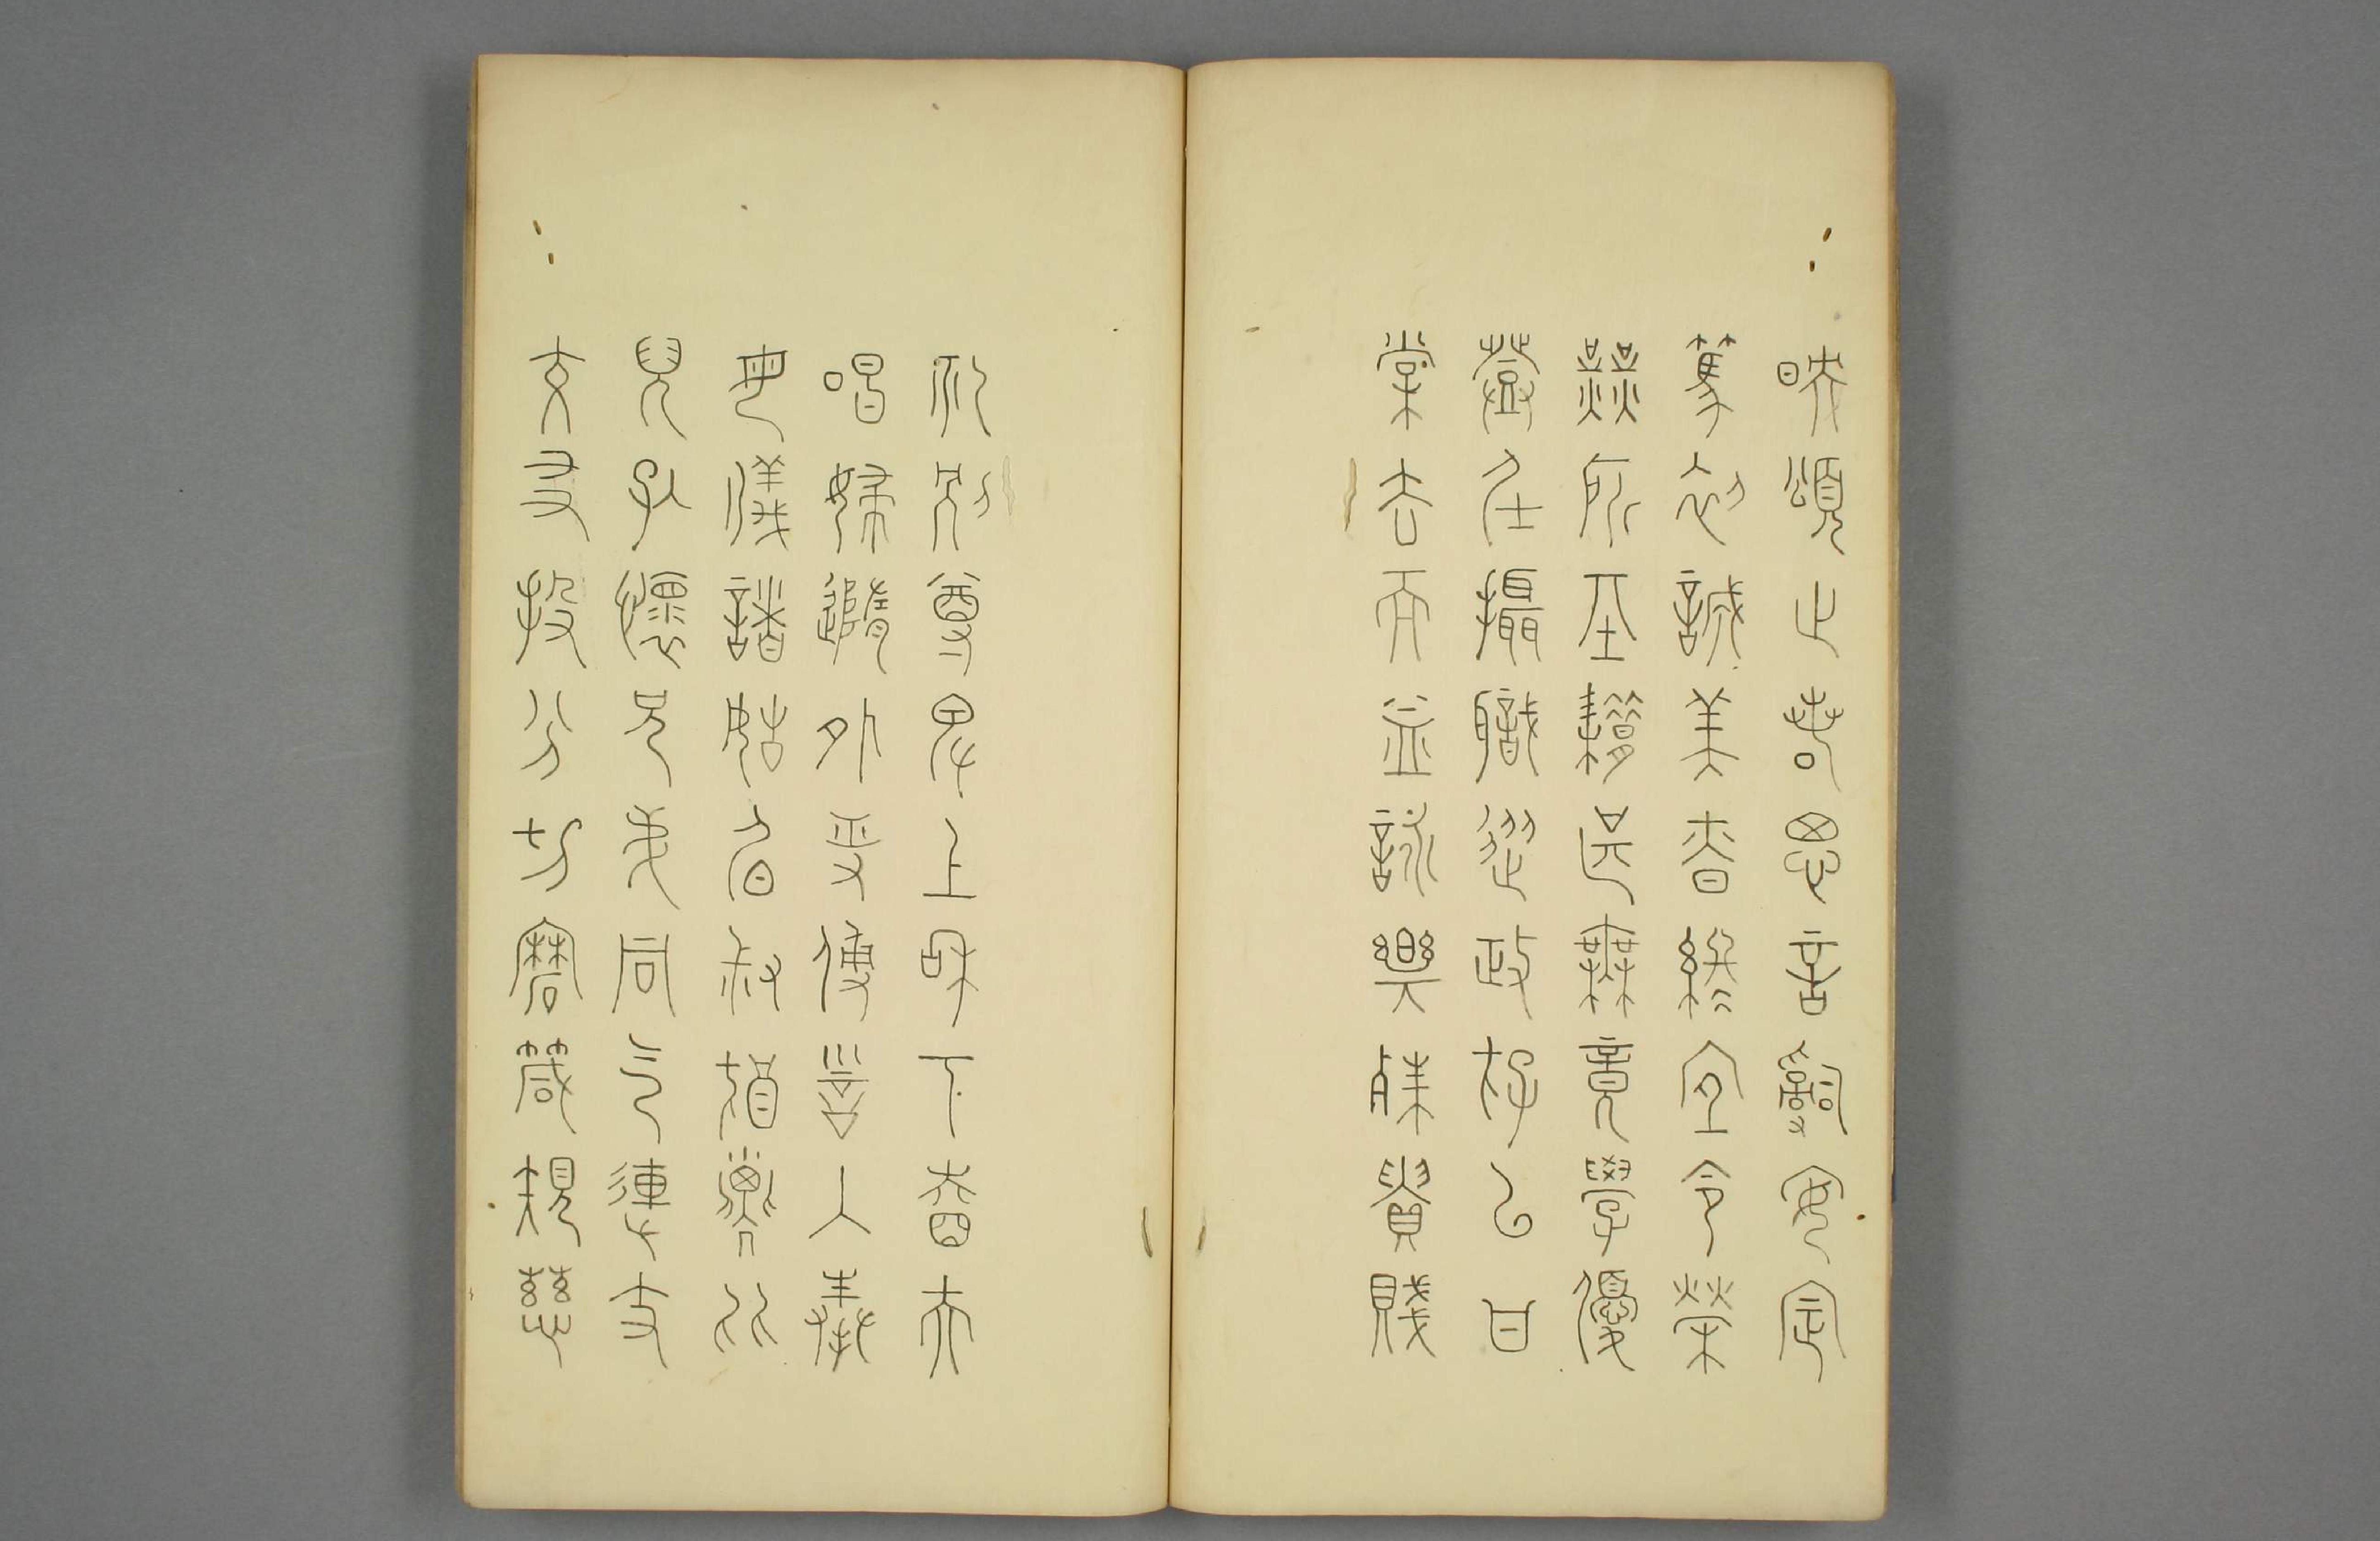 映容止若思言辭安定
篤初誠美慎終宜令榮
業所基藉甚無竟學優
登仕攝職從政存以甘
棠去而益詠樂殊貴賤
禮別尊卑上和下睦夫
唱婦隨外受傅訓入奉
母儀諸姑伯叔猶子比
兒孔懷兄弟同氣連枝
交友投分切磨箴規慈